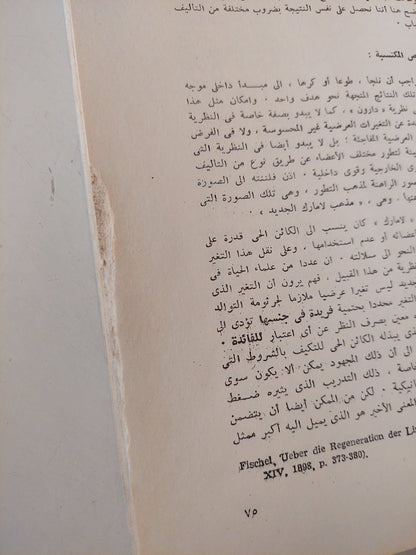 ضح هنا أننا نحصل على نفس النتيجة بضروب مختلفة من التأليف
ص المكتسبة :
واجب أن نلجأ ، طوعا أو كرها ، الى مبدأ داخلى موجه
تلك النتائج المتجهة نحو هدف واحد . وامكان مثل هذا
نظرية « دارون » . كما لا يبدو بصفة خاصة فى النظرية
دة عن التغيرات العرضية غير المحسوسة ، ولا فى الفرض
العرضية المفاجئة ؛ بل لا يبدو أيضا فى النظرية التى
ينة لتطور مختلف الأعضاء عن طريق نوع من التأليف
رى الخارجية وقوى داخلية . اذن فلننته الى الصورة
صور الراهنة لمذهب التطور ، وهى تلك الصورة التى
عنها ، وهى « مذهب لامارك الجديد » .
« لامارك » كان ينسب الى الكائن الحى قدرة على
أعضائه أو عدم استخدامها ، وعلى نقل هذا التغير
النحو الى سلالته . ان عددا من علماء الحياة فى
نظرية من هذا القبيل . فهم يرون أن التغير الذى
جديد ليس تغيرا عرضيا ملازما لجرثومة التوالد
التغير محددا بحتمية فريدة فى جنسها تؤدى الى
معين بصرف النظر عن أى اعتبار للفائدة .
ذى يبذله الكائن الحى للتكيف بالشروط التى
الى أن ذلك المجهود يمكن ألا يكون سوى
خاصة ، ذلك التدريب الذى يثيره ضغط
انيكية . لكن من الممكن أيضا أن يتضمن
المعنى الأخير هو الذى يميل اليه أكبر ممثل
Fischel, Ueber die Regeneration der Li
XIV, 1898, p. 373-380).
٧٥